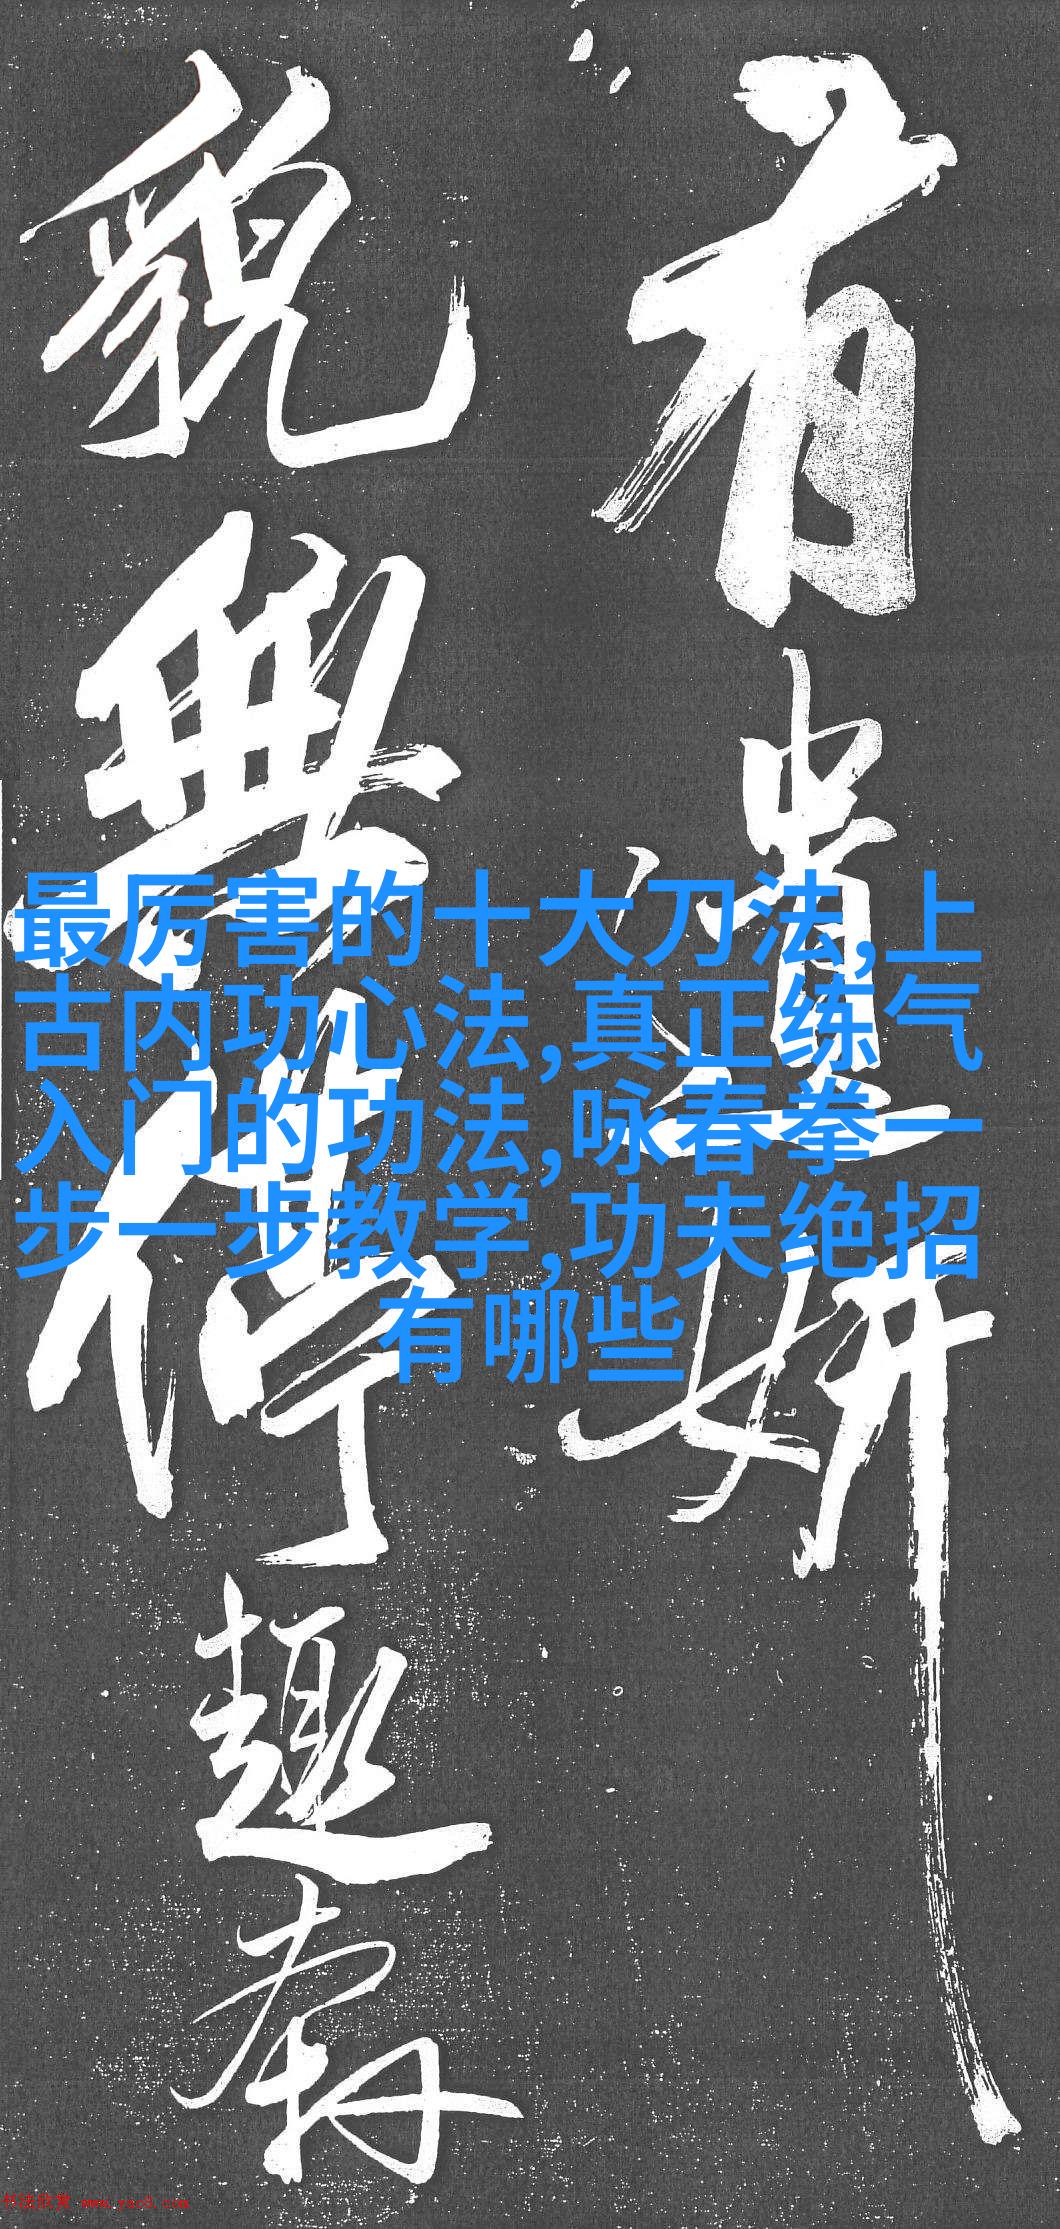 有遺妍
貌無停趣奔
最厉害的十大刀法,上
古内功心法,真正练气
入门的功法,咏春拳一
步一步教学,功夫绝招
有哪些
书法欣赏 www.yac8.com